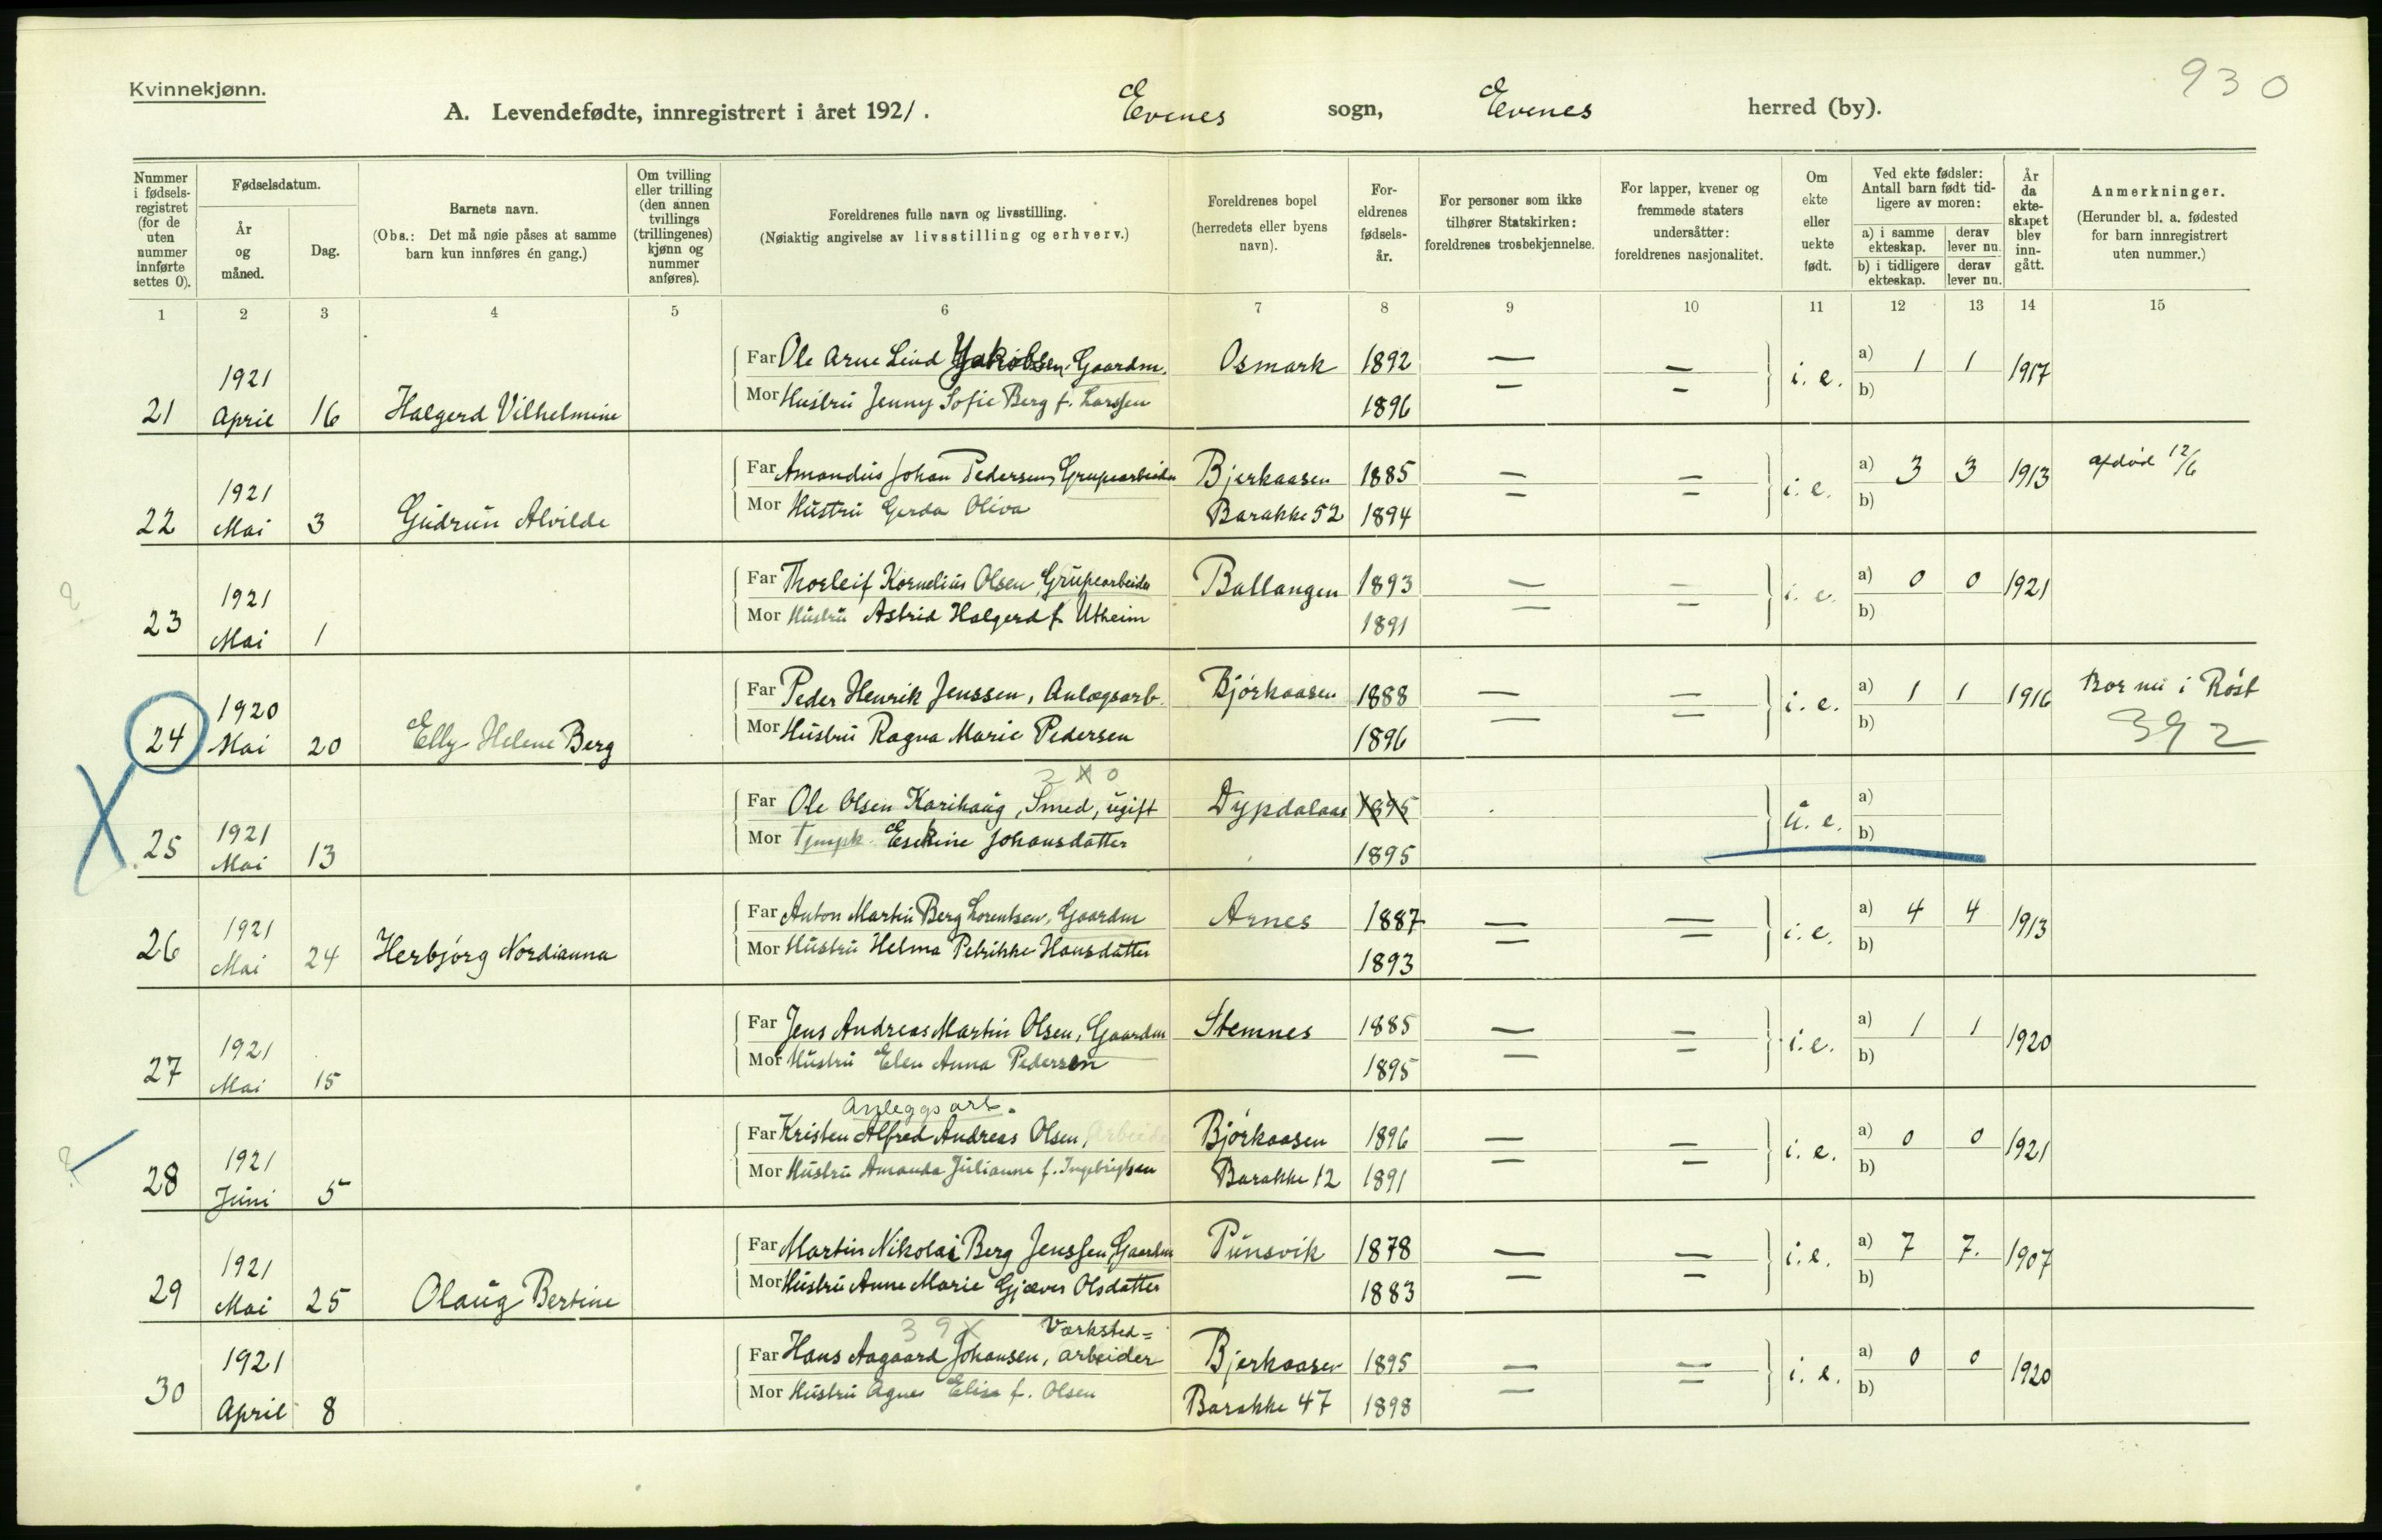 Kvinnekjønn.
930
A. Levendefødte, innregistrert i året 1921. Evenes sogn, Evenes herred (by).
Nummer i fødsels-registret (for de uten nummer innførte settes 0).
Fødselsdatum.
År og måned.
Dag.
Barnets navn.
(Obs.: Det må nøie påses at samme barn kun innføres én gang.)
Om tvilling eller trilling (den annen tvillings (trillingenes) kjønn og nummer anføres).
Foreldrenes fulle navn og livsstilling.
(Nøiaktig angivelse av livsstilling og erhverv.)
Foreldrenes bopel (herredets eller byens navn).
For-eldrenes fødsels-år.
For personer som ikke tilhører Statskirken: foreldrenes trosbekjennelse.
For lapper, kvener og fremmede staters undersåtter: foreldrenes nasjonalitet.
Om ekte eller uekte født.
Ved ekte fødsler: Antall barn født tid-ligere av moren:
a) i samme ekteskap.
derav lever nu.
b) i tidligere ekteskap.
derav lever nu.
År da ekte-skapet blev inn-gått.
Anmerkninger.
(Herunder bl. a. fødested for barn innregistrert uten nummer.)
1 2 3 4 5 6 7 8 9 10 11 12 13 14 15
21 1921 April 16 Halgerd Vilhelmine
Far Ole Arne Lind Jakobsen, Gaardm. Osmark 1892 — — i. e. a) 1 1 1917
Mor Hustru Jenny Sofie Berg f. Larssen 1896 — — b)
22 1921 Mai 3 Gudrun Alvilde
Far Amandus Johan Pedersen, Grupearbeider Bjerkaasen 1885 — — i. e. a) 3 3 1913 afdød 12/6
Mor Hustru Gerda Oliva Barakke 52 1894 — — b)
23 1921 Mai 1
Far Thorleif Kornelius Olsen, Grupearbeider Ballangen 1893 — — i. e. a) 0 0 1921
Mor Hustru Astrid Halgerd f. Utheim 1891 — — b)
24 1920 Mai 20 Elly Helene Berg
Far Peder Henrik Jenssen, Anlægsarb. Bjørkaasen 1888 — — i. e. a) 1 1 1916 Bor nu i Røst
Mor Hustru Ragna Marie Pedersen 1896 — — b) 392
25 1921 Mai 13
Far Ole Olsen Karihaug, Smed, ugift Dypdalaas 1895 u. e. a)
Mor Tjmpk. Esekine Johansdatter 1895 b)
26 1921 Mai 24 Herbjørg Nordianna
Far Anton Martin Berg Lorentsen, Gaardm Arnes 1887 — — i. e. a) 4 4 1913
Mor Hustru Helma Petrikke Hansdatter 1893 — — b)
27 1921 Mai 15
Far Jens Andreas Martin Olsen, Gaardm Stemnes 1885 — — i. e. a) 1 1 1920
Mor Hustru Elen Anna Pedersen 1895 — — b)
28 1921 Juni 5
Anleggsarb.
Far Kristen Alfred Andreas Olsen, Arbeider Bjørkaasen 1896 — — i. e. a) 0 0 1921
Mor Hustru Amanda Julianne f. Ingebrigtsen Barakke 12 1891 — — b)
29 1921 Mai 25 Olaug Bertine
Far Martin Nikolai Berg Jenssen, Gaardm Punsvik 1878 — — i. e. a) 7 7. 1907
Mor Hustru Anne Marie Gjæver Olsdatter 1883 — — b)
30 1921 April 8
39x Værksted=
Far Hans Aagaard Johansen, arbeider Bjerkaasen 1895 — — i. e. a) 0 0 1920
Mor Hustru Agnes Elise f. Olsen Barakke 47 1898 — — b)